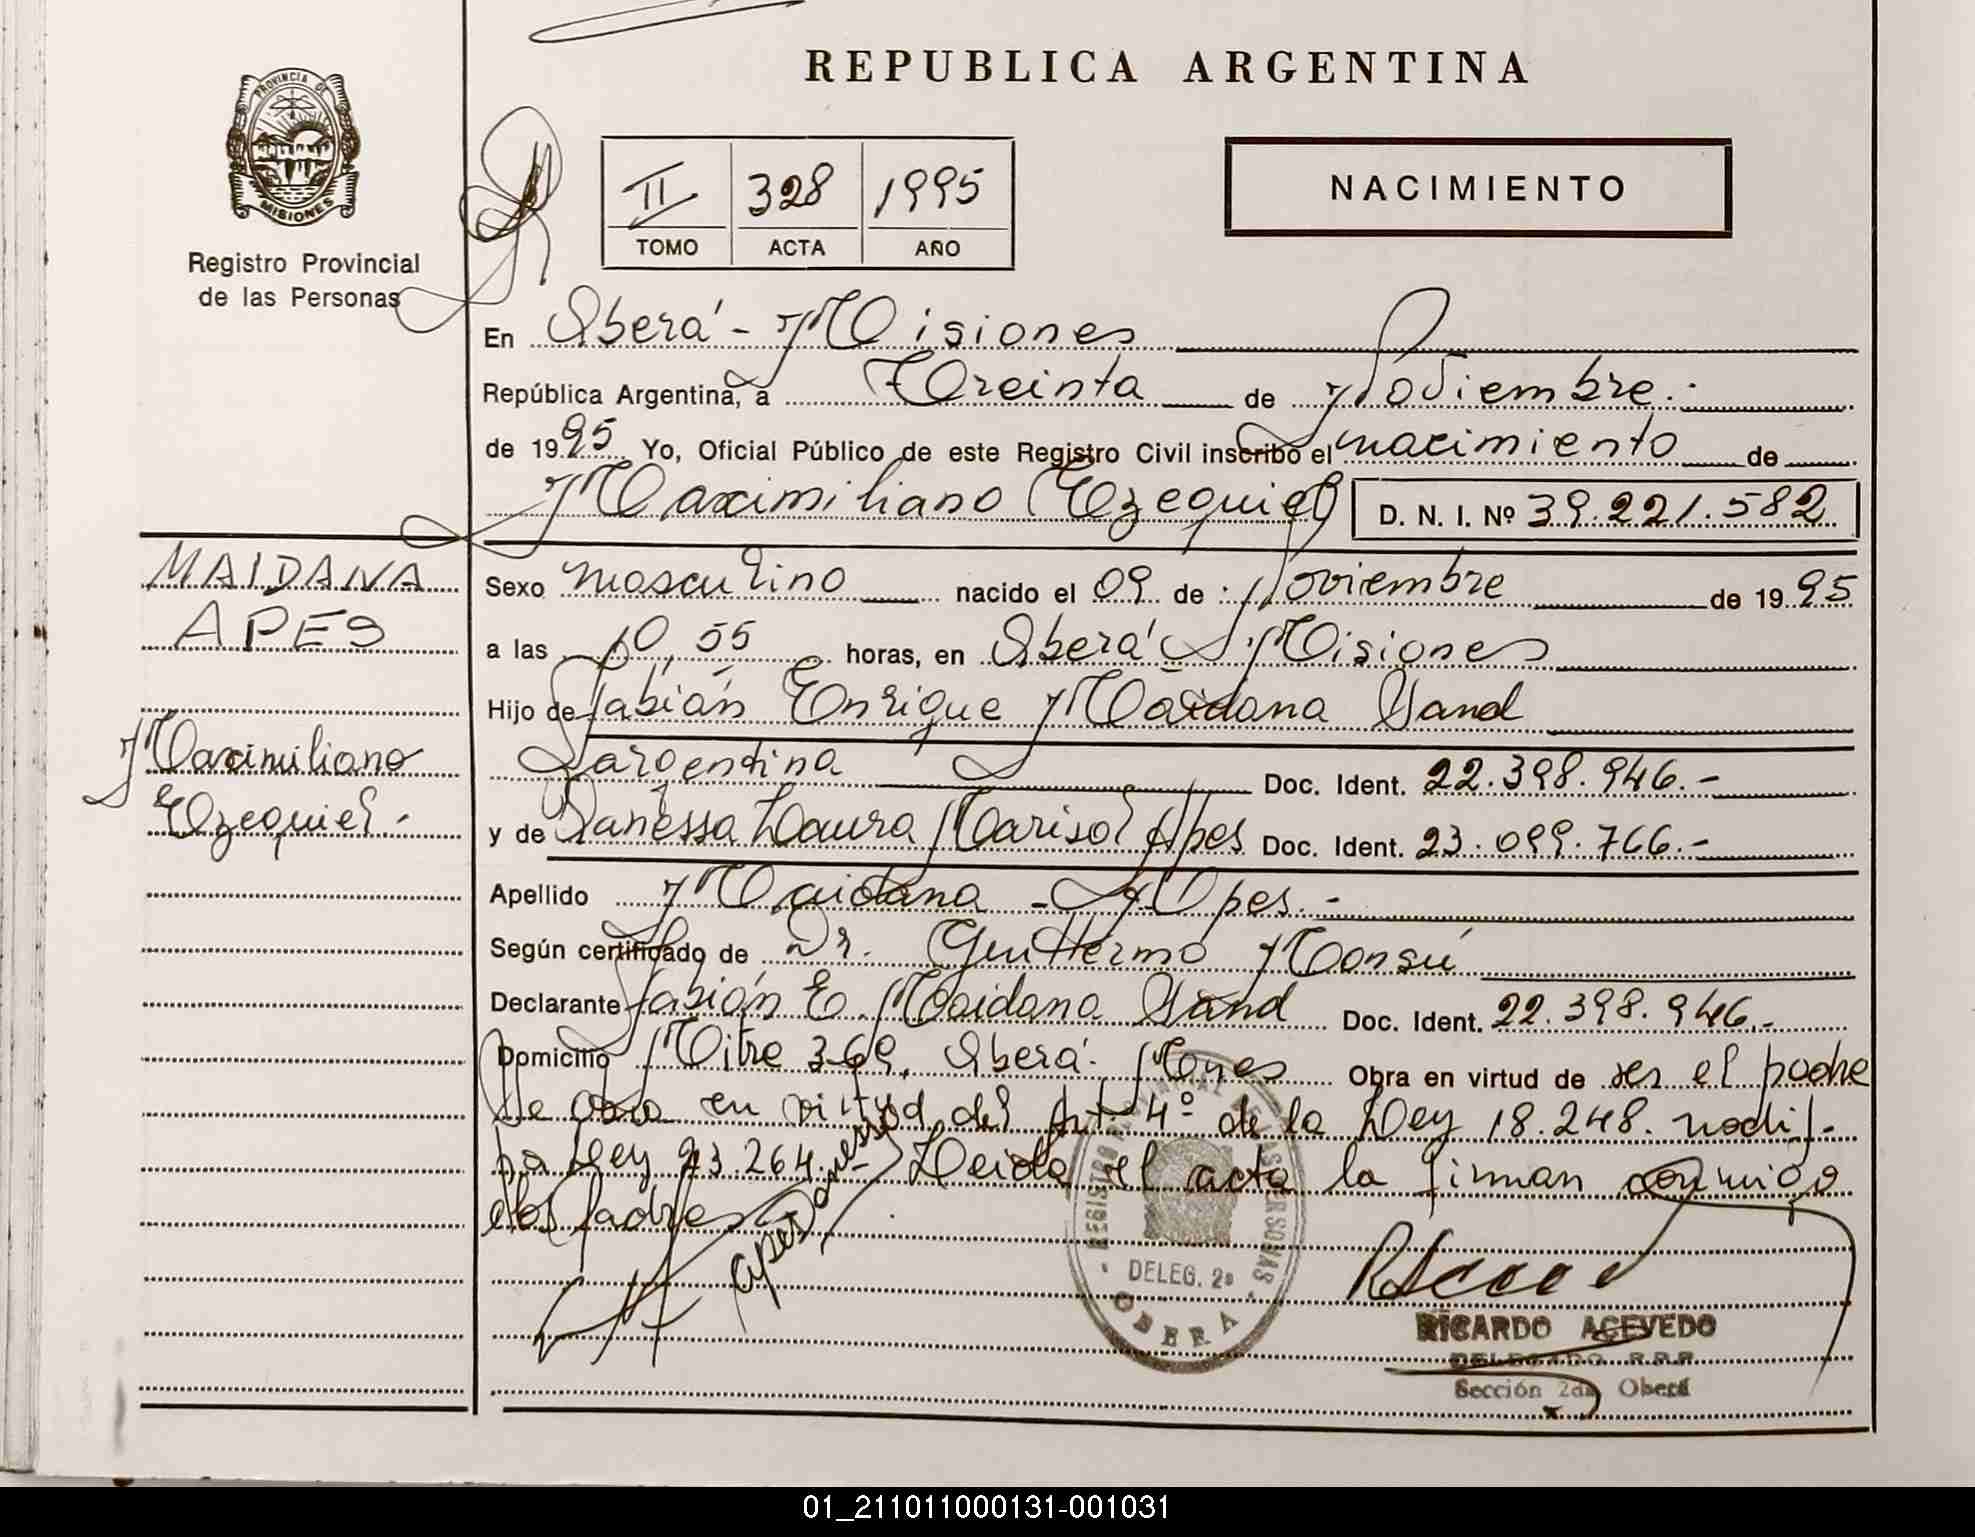 REPUBLICA ARGENTINA
PROVINCIA DE
MISIONES
Registro Provincial
de las Personas
II 328 1995
TOMO ACTA AÑO
NACIMIENTO
En Oberá - Misiones
República Argentina, a Treinta de Noviembre.
de 1995 Yo, Oficial Público de este Registro Civil inscribo el nacimiento de
Maximiliano Ezequiel D. N. I. Nº 39.221.582
MAIDANA
APES
Maximiliano
Ezequiel.-
Sexo masculino nacido el 09 de Noviembre de 1995
a las 10,55 horas, en Oberá - Misiones
Hijo de Fabián Enrique Maidana Sand
argentina Doc. Ident. 22.398.946.-
y de Vanessa Laura Marisol Apes Doc. Ident. 23.099.766.-
Apellido Maidana - Apes.-
Según certificado de Dr. Guillermo Monsú
Declarante Fabián E. Maidana Sand Doc. Ident. 22.398.946.-
Domicilio Mitre 369, Oberá. Mnes Obra en virtud de ser el padre
Se obra en virtud del Art. 4º de la Ley 18.248. modif.
pa Ley 23.264.- Leida el acta la firman conmigo
los padres
Apes Vanessa
REGISTRO PROVINCIAL DE LAS PERSONAS
DELEG. 2a
OBERA
RICARDO ACEVEDO
DELEGADO R.P.P.
Sección 2da Oberá
01_211011000131-001031